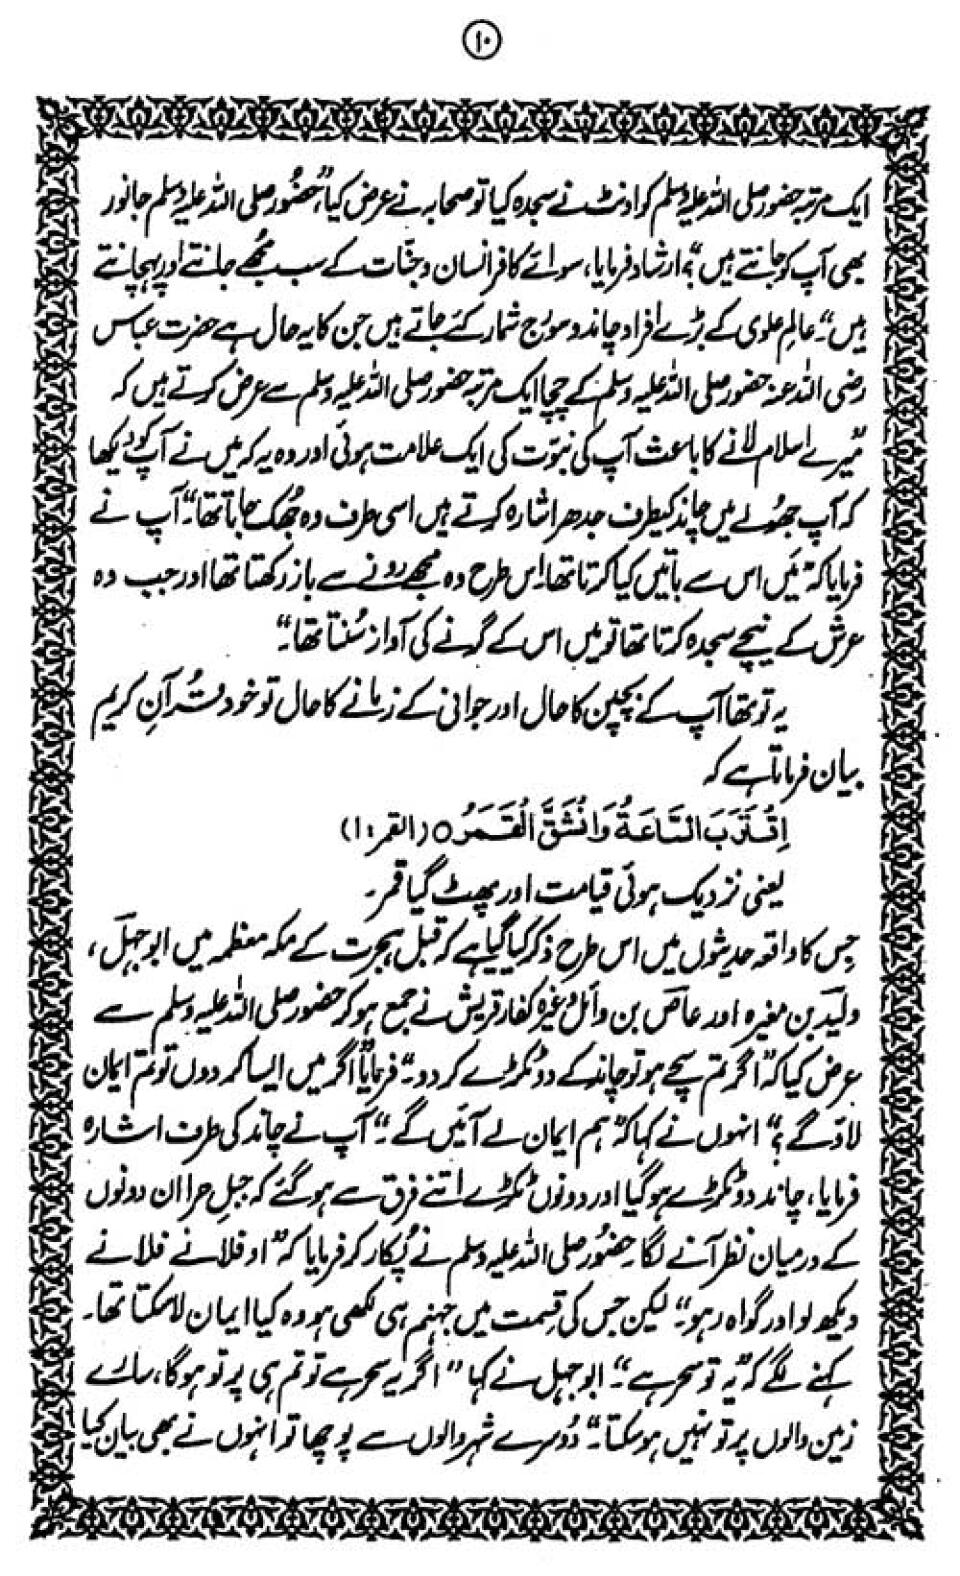 ۱۰
ایک مرتبہ حضور صلی اللہ علیہ وسلم کو اونٹ نے سجدہ کیا تو صحابہ نے عرض کیا "حضور صلی اللہ علیہ وسلم جانور
بھی آپ کو جانتے ہیں؟" ارشاد فرمایا، سوائے کافر انسان و جنات کے سب مجھے جانتے اور پہچانتے
ہیں" عالم علوی کے بڑے افراد چاند و سورج شمار کئے جاتے ہیں جن کا یہ حال ہے حضرت عباس
رضی اللہ عنہ حضور صلی اللہ علیہ وسلم کے چچا ایک مرتبہ حضور صلی اللہ علیہ وسلم سے عرض کرتے ہیں کہ
"میرے اسلام لانے کا باعث آپ کی نبوت کی ایک علامت ہوئی اور وہ یہ کہ میں نے آپ کو دیکھا
کہ آپ جھولے میں چاند کیطرف جدھر اشارہ کرتے ہیں اسی طرف وہ جھک جاتا تھا" آپ نے
فرمایا کہ "میں اس سے باتیں کیا کرتا تھا۔ اس طرح وہ مجھے رونے سے باز رکھتا تھا اور جب وہ
عرش کے نیچے سجدہ کرتا تھا تو میں اس کے گرنے کی آواز سُنتا تھا۔"
یہ تو تھا آپ کے بچپن کا حال اور جوانی کے زمانے کا حال تو خود قرآنِ کریم
بیان فرماتا ہے کہ
اِقْتَرَبَ السَّاعَةُ وَانْشَقَّ الْقَمَرُ ○ (القمر: ۱)
یعنی نزدیک ہوئی قیامت اور پھٹ گیا قمر۔
جس کا واقعہ حدیثوں میں اس طرح ذکر کیا گیا ہے کہ قبل ہجرت کے مکہ معظمہ میں ابوجہل،
ولید بن مغیرہ اور عاص بن وائل وغیرہ کفار قریش نے جمع ہو کر حضور صلی اللہ علیہ وسلم سے
عرض کیا کہ "اگر تم سچے ہو تو چاند کے دو ٹکڑے کر دو۔" فرمایا "اگر میں ایسا کر دوں تو تم ایمان
لاؤ گے؟" انہوں نے کہا کہ "ہم ایمان لے آئیں گے۔" آپ نے چاند کی طرف اشارہ
فرمایا، چاند دو ٹکڑے ہو گیا اور دونوں ٹکڑے اتنے فرق سے ہو گئے کہ جبلِ حرا ان دونوں
کے درمیان نظر آنے لگا۔ حضور صلی اللہ علیہ وسلم نے پُکار کر فرمایا کہ "او فلانے فلانے
دیکھ لو اور گواہ رہو۔" لیکن جس کی قسمت میں جہنم ہی لکھی ہو وہ کیا ایمان لا سکتا تھا۔
کہنے لگے کہ "یہ تو سحر ہے"۔ ابوجہل نے کہا "اگر یہ سحر ہے تو تم ہی پر تو ہو گا، سارے
زمین والوں پر تو نہیں ہو سکتا۔" دُوسرے شہر والوں سے پوچھا تو انہوں نے بھی بیان کیا